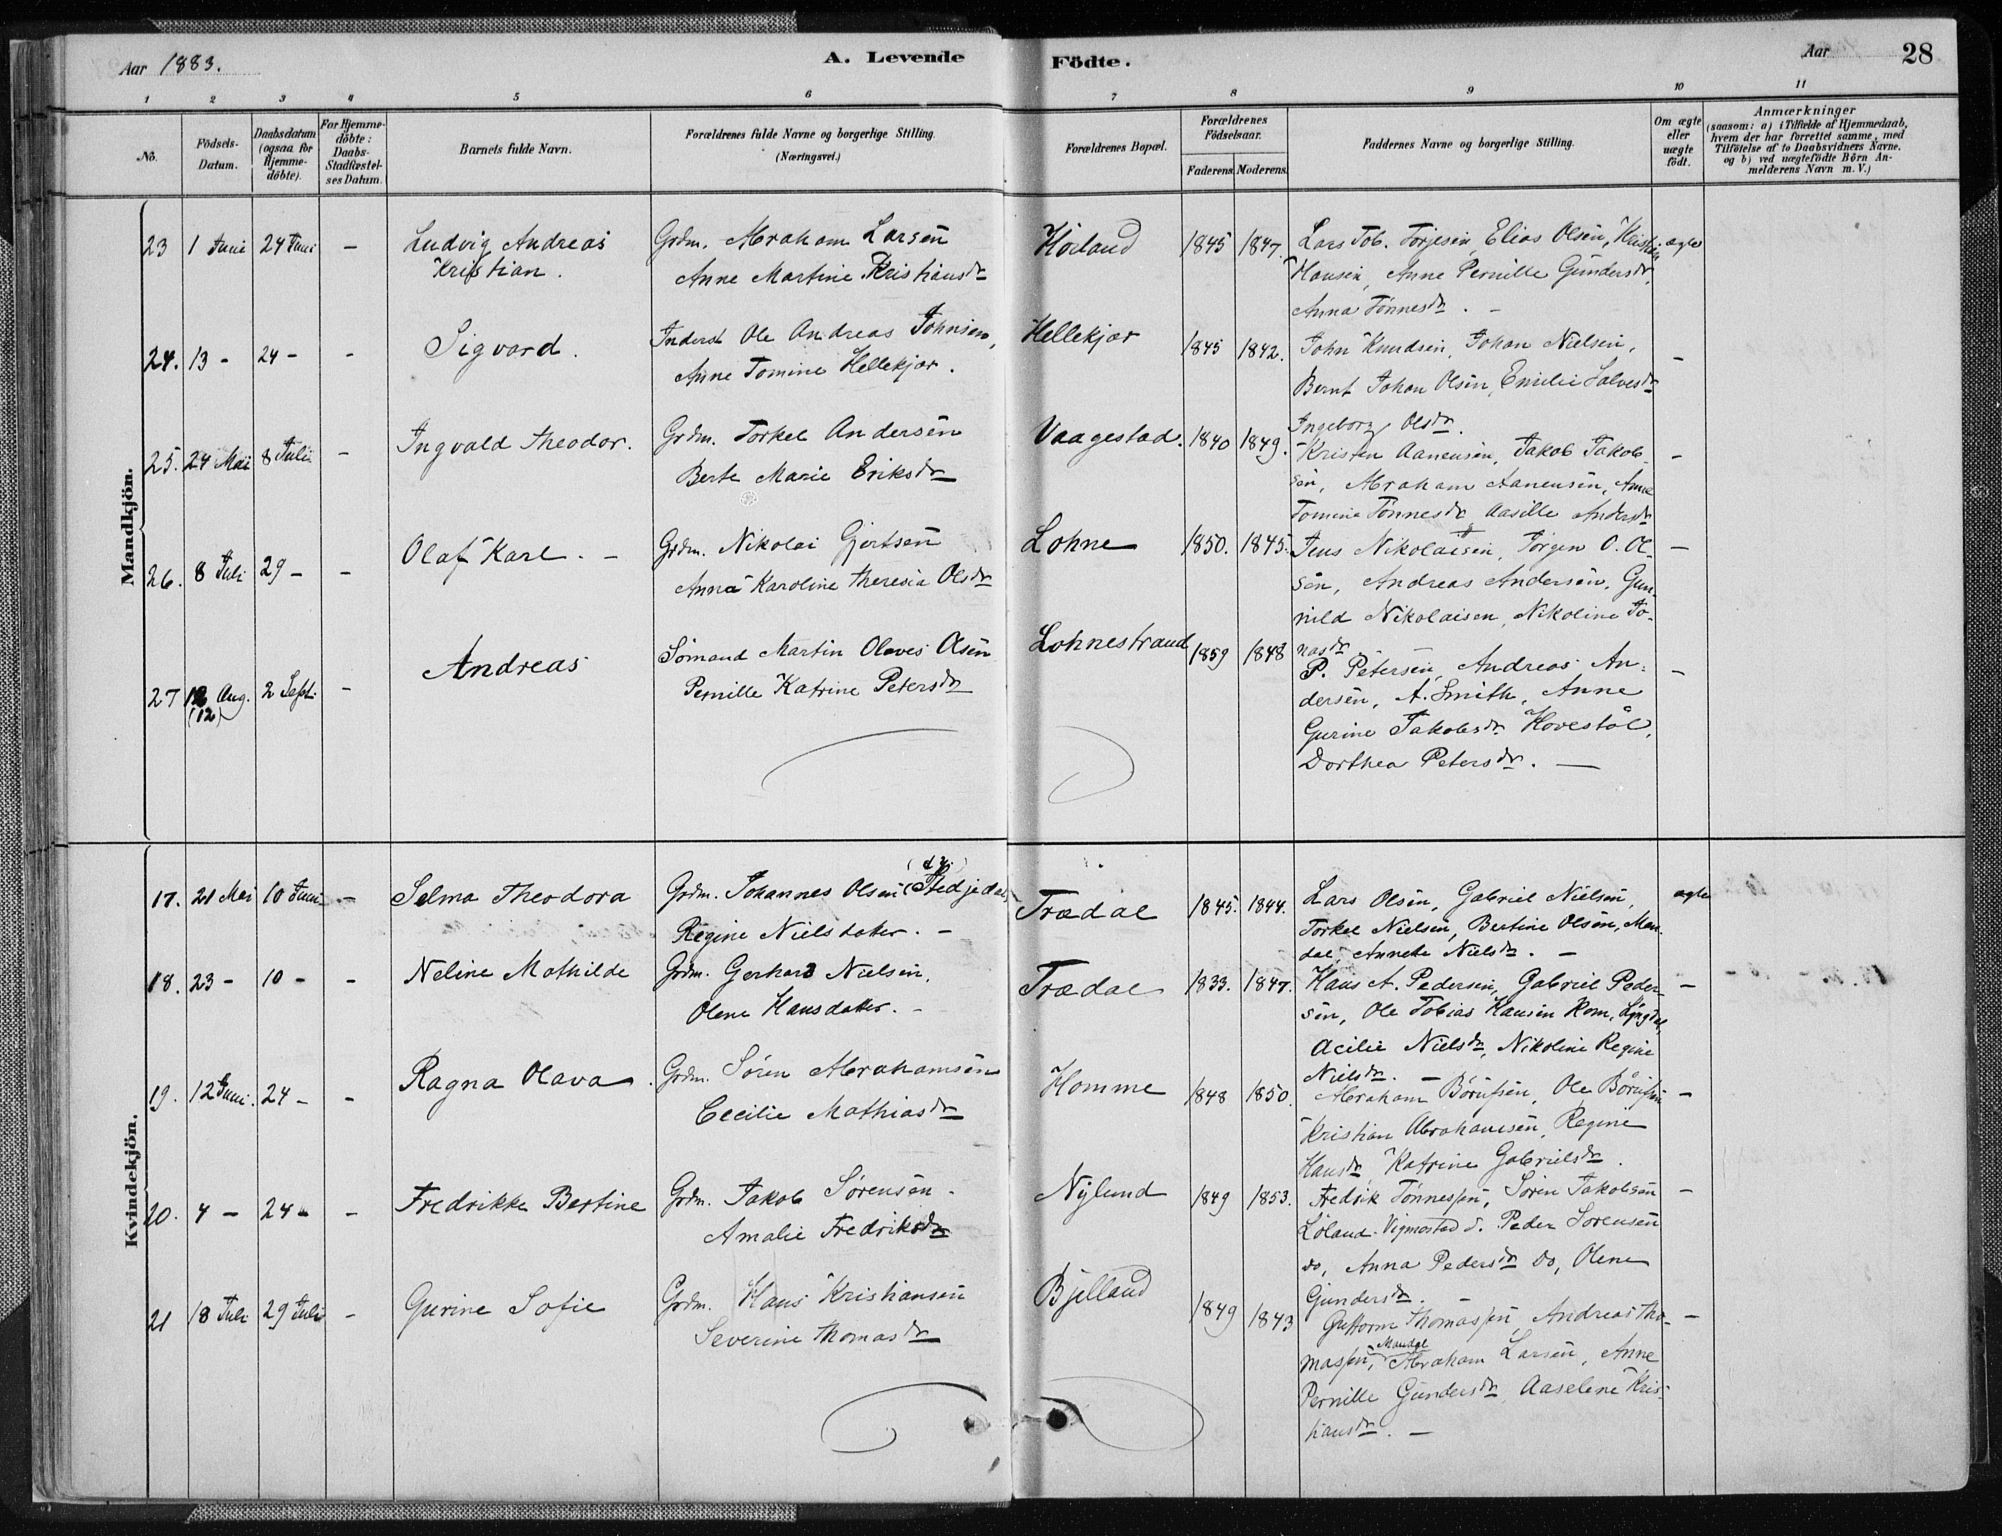 Aar 1883.
A. Levende Födte.
Aar
28
1 2 3 4 5 6 7 8 9 10 11
No.
Födsels-Datum.
Daabsdatum (ogsaa for Hjemme-döbte).
For Hjemme-döbte: Daabs-Stadfæstel-ses Datum.
Barnets fulde Navn.
Forældrenes fulde Navne og borgerlige Stilling.
(Næringsvei.)
Forældrenes Bopæl.
Forældrenes Födselsaar.
Faderens. Moderens.
Faddernes Navne og borgerlige Stilling.
Om ægte eller uægte födt.
Anmærkninger
(saasom: a) i Tilfælde af Hjemmedaab,
hvem der har forrettet samme, med
Tilföielse af to Daabsvidners Navne,
og b) ved uægtefödte Börn An-
melderens Navn m. V.)
Mandkjön.
23 1 Juni 24 Juni - Ludvig Andreas Kristian.
Grdm. Abraham Larsen
Anne Martine Kristiansdr
Hörland 1845 1847.
Lars Tob. Torjesen, Elias Olsen, Kristian
Hansen, Anne Pernille Gundersdr,
Anna Tönnesdr. -
ægte
24. 13 - 24 - - Sigvard.
Inderst Ole Andreas Johnsen,
Anne Tomine Hellekjær.
Hellekjær 1845 1842.
John Knudsen, Johan Nielsen,
Bernt Johan Olsen, Emilie Salvesdr
Ingeborg Olsdr.
-
25. 24 Mai 8 Juli - Ingvald Theodor.
Grdm. Torkel Andersen
Berte Marie Eriksdr
Vaagestad. 1840 1849.
Kristen Aanensen, Jakob Jakob-
sen, Abraham Aanensen, Anne
Tomine Tönnesdr, Aasille Andersdr
-
26. 8 Juli 29 - - Olaf Karl. -
Grdm. Nikolai Gjertsen
Anna Karoline Theresia Olsdr
Lohne 1850. 1845.
Jens Nikolaisen, Jörgen O. Ol-
sen, Andreas Andersen, Gun-
nild Nikolaisen, Nikoline Jo-
nasdr.
-
27 12 Aug. (12) 2 Sept. - Andreas
Sömand Martin Olaves Olsen
Pernille Katrine Petersdr
Lohnestrand 1859 1848
P. Petersen, Andreas An-
dersen, A. Smith, Anne
Gurine Jakobsdr Hovestöl,
Dorthea Petersdr. -
-
Kvindekjön.
17. 21 Mai 10 Juni - Selma Theodora
Grdm. Johannes Olsen
Regine Nielsdatter. -
Trædal 1845. 1844.
Lars Olsen, Gabriel Nielsen,
Torkel Nielsen, Bertine Olsen, Man-
dal, Annette Nielsdr. -
ægte
18. 23 - 10 - - Neline Mathilde
Grdm. Gerhard Nielsen,
Olene Hansdatter. -
Trædal 1833. 1847.
Hans A. Pedersen, Gabriel Peder-
sen, Ole Tobias Hansen Rom, Lyngdal,
Acilie Nielsdr, Nikoline Regine
Nielsdr. -
-
19. 12 Juni. 24 - - Ragna Olava.
Grdm. Sören Abrahamsen
Cecilie Mathiasdr
Homme 1848 1850.
Abraham Börufsen, Ole Börufsen
Kristian Abrahamsen, Regine
Hansdr, Katrine Gabrielsdr.
-
20. 4 - 24 - - Fredrikke Bertine
Grdm. Jakob Sörensen.
Amalie Fredriksdr
Nylund 1849 1853.
Fredrik Tönnessen, Sören Jakobsen
Löland Vigmostad S. Peder Sörensen
do, Anna Pedersdr do, Olene
Gundersdr. -
-
21 18 Juli 29 Juli - Gurine Sofie
Grdm. Hans Kristiansen
Severine Thomasdr
Bjelland 1849 1843
Guttorm Thomassen, Andreas Tho-
massen, Mandal Abraham Larsen, Anne
Pernille Gundersdr, Aaselene Kris-
tiansdr. -
-